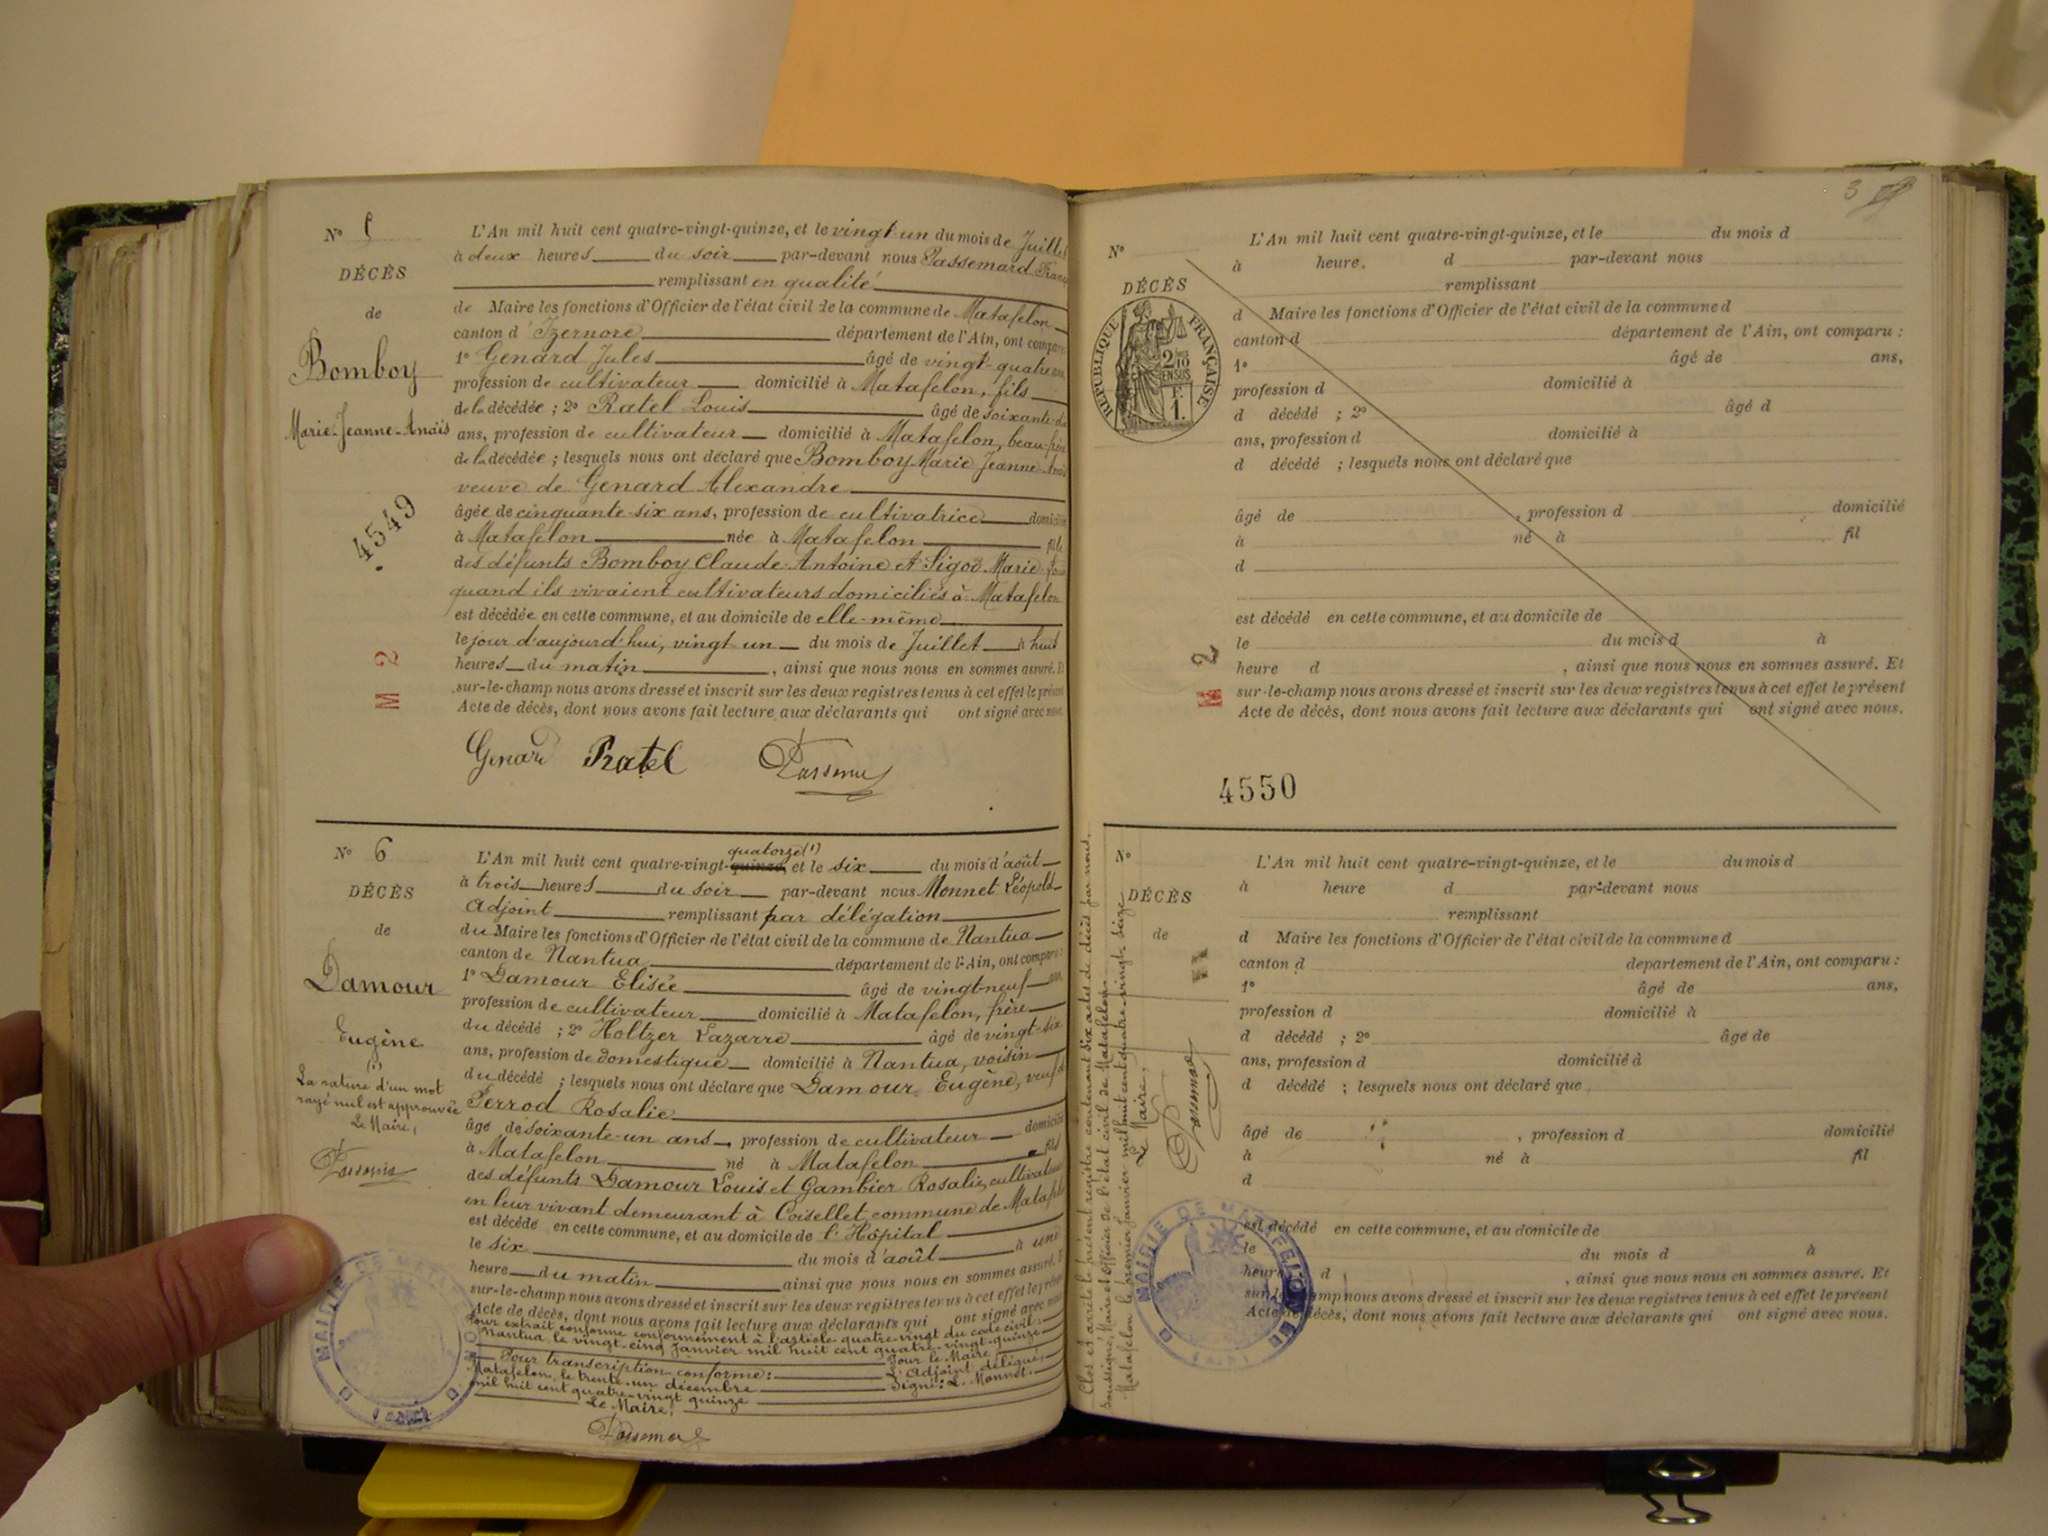 N° 5
DÉCÈS
de
Bomboy
Marie-Jeanne-Anaïs
4549
M 2
L'An mil huit cent quatre-vingt-quinze, et le vingt-un du mois de Juillet
à deux heures du soir par-devant nous Passemard
remplissant en qualité
de Maire les fonctions d'Officier de l'état civil de la commune de Matafelon
canton d'Izernore département de l'Ain, ont comparu
1° Genard Jules âgé de vingt-quatre ans,
profession de cultivateur domicilié à Matafelon, fils
de la décédée ; 2° Ratel Louis âgé de soixante-
ans, profession de cultivateur domicilié à Matafelon, beau-frère
de la décédée ; lesquels nous ont déclaré que Bomboy Marie Jeanne Anaïs
veuve de Genard Alexandre
âgée de cinquante-six ans, profession de cultivatrice domiciliée
à Matafelon née à Matafelon fille
des défunts Bomboy Claude-Antoine et Marie
quand ils vivaient cultivateurs domiciliés à Matafelon
est décédée en cette commune, et au domicile de elle-même
le jour d'aujourd'hui, vingt un du mois de Juillet à huit
heures du matin, ainsi que nous nous en sommes assuré. Et
sur-le-champ nous avons dressé et inscrit sur les deux registres tenus à cet effet le présent
Acte de décès, dont nous avons fait lecture aux déclarants qui ont signé avec nous.
Genard Ratel
N° 6
DÉCÈS
de
Damour
Eugène
(1)
La rature d'un mot
rayé nul est approuvée
Le Maire,
L'An mil huit cent quatre-vingt-quinze, quatorze (1) et le six du mois d'août
à trois heures du soir par-devant nous Monnet Léopold
Adjoint remplissant par délégation
du Maire les fonctions d'Officier de l'état civil de la commune de Nantua
canton de Nantua département de l'Ain, ont comparu :
1° Damour Elisée âgé de vingt-neuf ans,
profession de cultivateur domicilié à Matafelon, frère
du décédé ; 2° Holtzer Lazarre âgé de vingt-six
ans, profession de domestique domicilié à Nantua, voisin
du décédé ; lesquels nous ont déclaré que Damour Eugène, veuf de
Perrod Rosalie
âgé de soixante-un ans, profession de cultivateur domicilié
à Matafelon né à Matafelon fils
des défunts Damour Louis et Gambier Rosalie, cultivateurs
en leur vivant demeurant à Coisellet, commune de Matafelon
est décédé en cette commune, et au domicile de l'Hôpital
le six du mois d'août à une
heure du matin ainsi que nous nous en sommes assuré. Et
sur-le-champ nous avons dressé et inscrit sur les deux registres tenus à cet effet le présent
Acte de décès, dont nous avons fait lecture aux déclarants qui ont signé avec nous.
Pour extrait conforme conformément à l'article quatre-vingt du code civil:
Nantua, le vingt-cinq janvier mil huit cent quatre-vingt-quinze
Pour le Maire
Pour transcription conforme: L'Adjoint délégué,
Matafelon, le trente-un décembre Signé: L. Monnet.
mil huit cent quatre-vingt quinze
Le Maire,
MAIRIE DE MATAFELON
(AIN)
3
N°
DÉCÈS
RÉPUBLIQUE FRANÇAISE
2/10 EN SUS
F.
1.
M 2
L'An mil huit cent quatre-vingt-quinze, et le du mois d
à heure. d par-devant nous
remplissant
d Maire les fonctions d'Officier de l'état civil de la commune d
canton d département de l'Ain, ont comparu :
1° âgé de ans,
profession d domicilié à
d décédé ; 2° âgé d
ans, profession d domicilié à
d décédé ; lesquels nous ont déclaré que
âgé de , profession d domicilié
à né à fil
d
est décédé en cette commune, et au domicile de
le du mois d à
heure d , ainsi que nous nous en sommes assuré. Et
sur-le-champ nous avons dressé et inscrit sur les deux registres tenus à cet effet le présent
Acte de décès, dont nous avons fait lecture aux déclarants qui ont signé avec nous.
4550
N°
DÉCÈS
de
L'An mil huit cent quatre-vingt-quinze, et le du mois d
à heure d par-devant nous
remplissant
d Maire les fonctions d'Officier de l'état civil de la commune d
canton d département de l'Ain, ont comparu :
1° âgé de ans,
profession d domicilié à
d décédé ; 2° âge de
ans, profession d domicilié à
d décédé ; lesquels nous ont déclaré que
âgé de , profession d domicilié
à né à fil
d
est décédé en cette commune, et au domicile de
le du mois d à
heure d , ainsi que nous nous en sommes assuré. Et
sur-le-champ nous avons dressé et inscrit sur les deux registres tenus à cet effet le présent
Acte de décès, dont nous avons fait lecture aux déclarants qui ont signé avec nous.
Clos et arrêté le présent registre contenant six actes de décès par nous,
soussigné, Maire et officier de l'état civil de Matafelon.
Matafelon le premier janvier mil huit cent quatre-vingt-seize
Le Maire,
MAIRIE DE MATAFELON
(AIN)